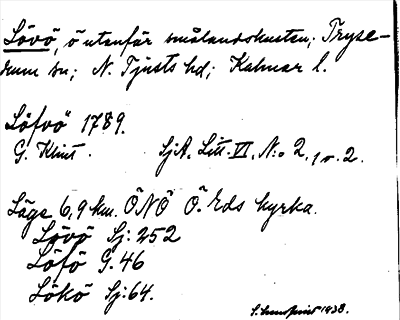 Lövö, ö utanför smålandskusten; Tryse-
rum sn; N. Tjusts hd; Kalmar l.
Löfvö 1789.
G. Klint. SjA. Litt. VI, N:o 2, 1 v. 2.
Läge 6,9 km. ÖNÖ Ö. Eds kyrka.
Lövö Sj: 252
Löfö G. 46
Lökö Sj: 64.
1938.